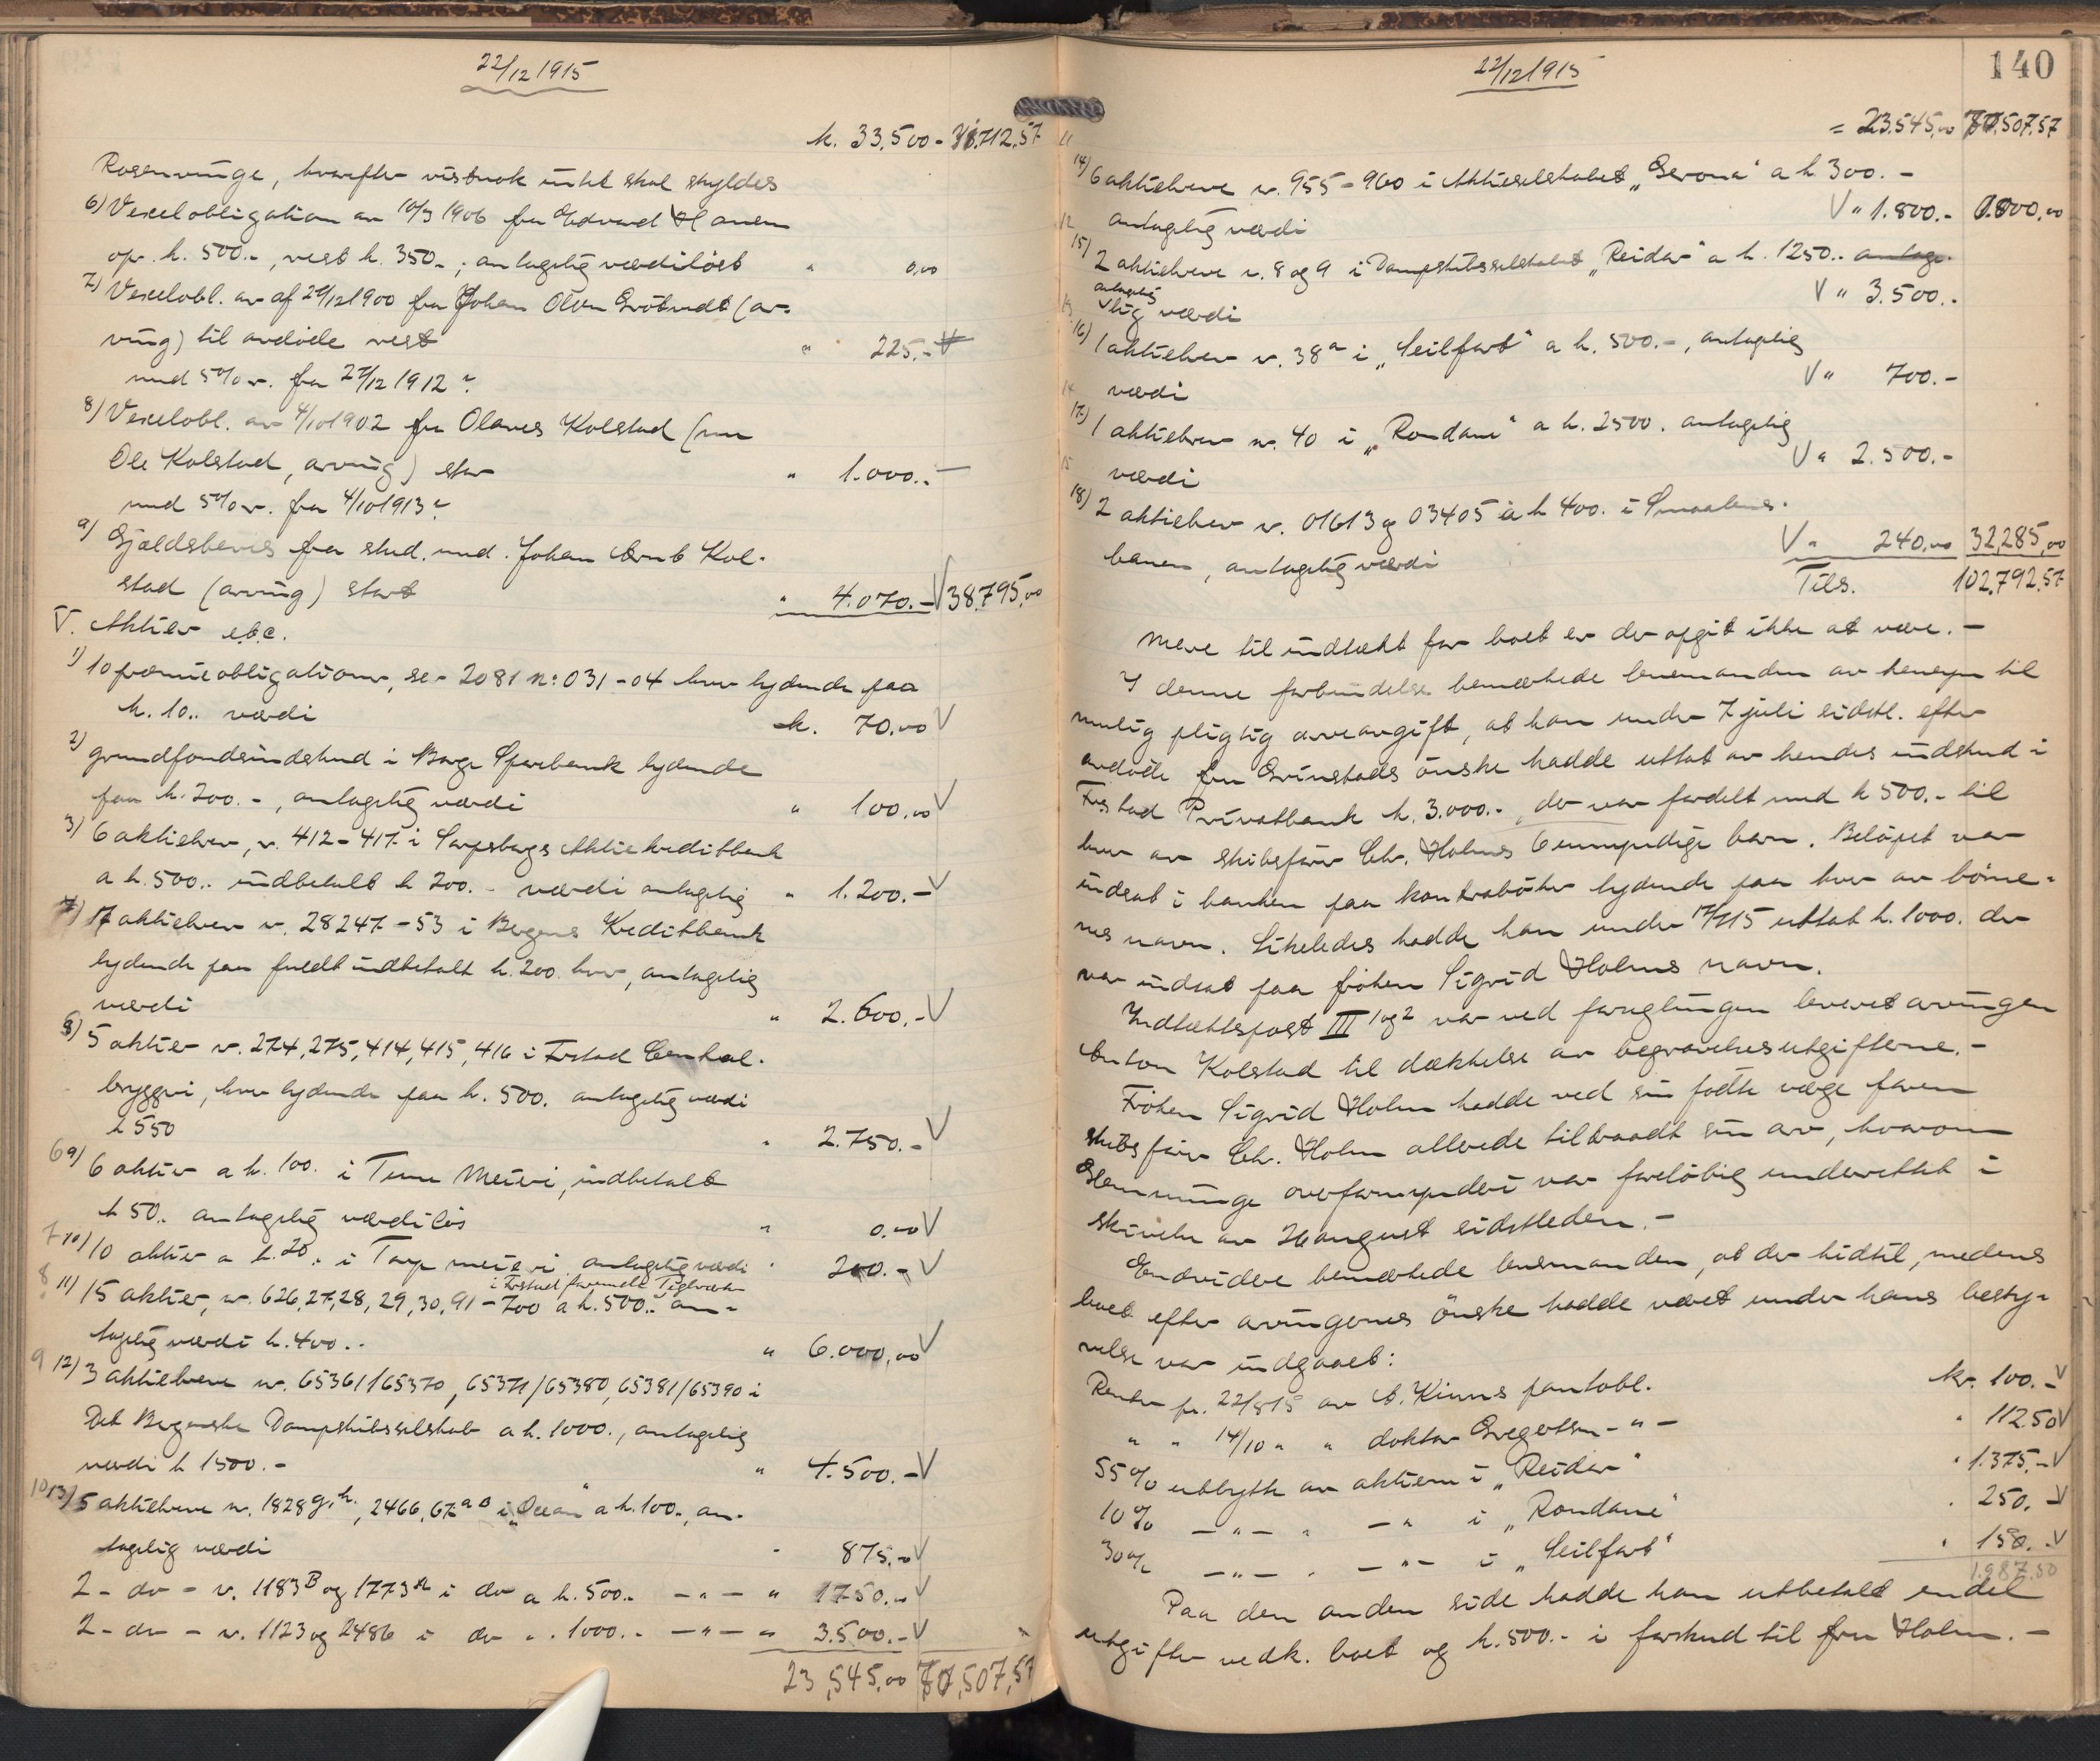 22/12 1915
k. 33,500 - 31.712,57
Rosenvinge, hvorefter vistnok intet skal skyldes
6) Vexelobligation av 10/3 1906 fra Edvard Hansen
opr. k. 500.-, rest k. 350.-, antagelig værdiløst " 0,00
7) Vexelobl. av af 27/12 1900 fra Johan Olsen Grötvedt (ar-
ving) til avdøde rest " 225.-
med 5% r. fra 27/12 1912?
8) Vexelobl. av 4/10 1902 fra Olaves Kolstad (nu
Ole Kolstad, arving) stor " 1.000.-
med 5% r. fra 4/10 1913?
9) Gjældsbevis fra stud. med. Johan Arnt Kol-
stad (arving) stort " 4.070.- V 38,795,00
V. Aktier etc.
1) 10 præmieobligationer, se- 2081 no 031-04 hver lydende paa
k. 10.. værdi k. 70,00 V
2) grundfondsindskud i Borge Sparebank lydende
paa k. 200.-, antagelig værdi " 100,00 V
3) 6 aktiebrev, nr. 412-417 i Sarpsborgs Aktiekreditbank
a k. 500.. indbetalt k 200.- værdi antagelig " 1.200.- V
7 aktiebrev nr. 28247-53 i Bergens Kreditbank
lydende paa fuldt indbetalt k. 200. hver, antagelig
værdi " 2.600.- V
5 aktier nr. 274, 275, 414, 415, 416 i Frstad Central-
bryggeri, hver lydende paa k. 500. antagelig værdi
k 550 " 2.750.- V
6 9) 6 aktier a k. 100. i Tune Meieri, indbetalt
k 50. antagelig værdiløs " 0,00 V
7 10) 10 aktier a k. 20. i Torp meieri antagelig værdi " 200.- V
i Frstad forenede Teglverker
8 11) 15 aktier, nr. 626, 27, 28, 29, 30, 91-700 a k. 500.. an-
tagelig værdi k. 400.. " 6.000,00 V
9 12) 3 aktiebreve nr. 65361/65370, 65371/65380, 65381/65390 i
Det Bergenske Dampskibsselskab a k. 1000., antagelig
værdi k 1500.- " 4.500.- V
10 13) 5 aktiebreve nr. 1828 g. h., 2466, 67 a B i "Ocean" a k. 100., an-
tagelig værdi " 875.- V
2 - do - nr. 1183 B og 1773 a i do a k. 500.. - " - " 1750.- V
2 - do - nr. 1123 og 2486 i do " . 1000.. - " - " 3.500.- V
23,545,00 70,507,57
22/12 1915
140
= 23.545,00 70.507,57
11
14) 6 aktiebreve nr. 955-960 i Aktieselskabet "Gerona" a k 300.-
antagelig værdi V " 1.800.- 1.800,00
12
15) 2 aktiebreve nr. 8 og 9 i Dampskibsselskabet "Reidar" a k. 1250.. antage-
antagelig
lig værdi V " 3.500.-
13
16) 1 aktiebrev nr. 38 a i "Seilfart" a k. 500.-, antagelig
værdi V " 700.-
14
17) 1 aktiebrev nr. 40 i "Rondane" a k. 2500. antagelig
værdi V " 2.500.-
15
18) 2 aktiebrev nr. 01613 og 03405 a k 400. i Smaalens-
banen, antagelig værdi V " 240,00 32,285,00
Tils. 102,792,57
Mere til indtækt for boet er der opgit ikke at være.-
I denne forbindelse bemerkede lensmanden av hensyn til
mulig pligtig arveavgift, at han under 7 juli sidstl. efter
avdøde fru Grimstads önske hadde uttat av hendes indskud i
Frstad Privatbank k. 3.000.-, der var fordelt med k 500.- til
hver av skibsfører Chr. Holms 6 umyndige barn. Beløpet var
indsat i banken paa kontrabøker lydende paa hver av børne-
nes navn. Likeledes hadde han under 17/7 15 uttat k. 1000. der
var indsat paa frøken Sigrid Holms navn.
Indtægtspost III 1 og 2 var ved forseglingen leveret arvingen
Anton Kolstad til dækkelse av begravelsesutgifterne.-
Frøken Sigrid Holm hadde ved sin fødte værge faren
skibsfører Chr. Holm allerede tiltraadt sin arv, hvorom
Glemminge overformynderi var foreløbig underrettet i
skrivelse av 26 august sidstleden.-
Endvidere bemerkede lensmanden, at der hidtil, medens
boet efter arvingernes önske hadde været under hans besty-
relse var indgaaet:
Renter pr. 22/8 15 av A. Kinns pantobl. kr. 100.- V
" " 14/10 " " doktor Gregersen - " - " 112.50 V
55% utbytte av aktierne i "Reidar" " 1.375.- V
10% - " - " - " i "Rondane" " 250.- V
30% - " - . - " - i "Seilfart" " 150.- V
1.987.50
Paa den anden side hadde han utbetalt endel
utgifter vedk. boet og k. 500.- i forskud til fru Holm.-